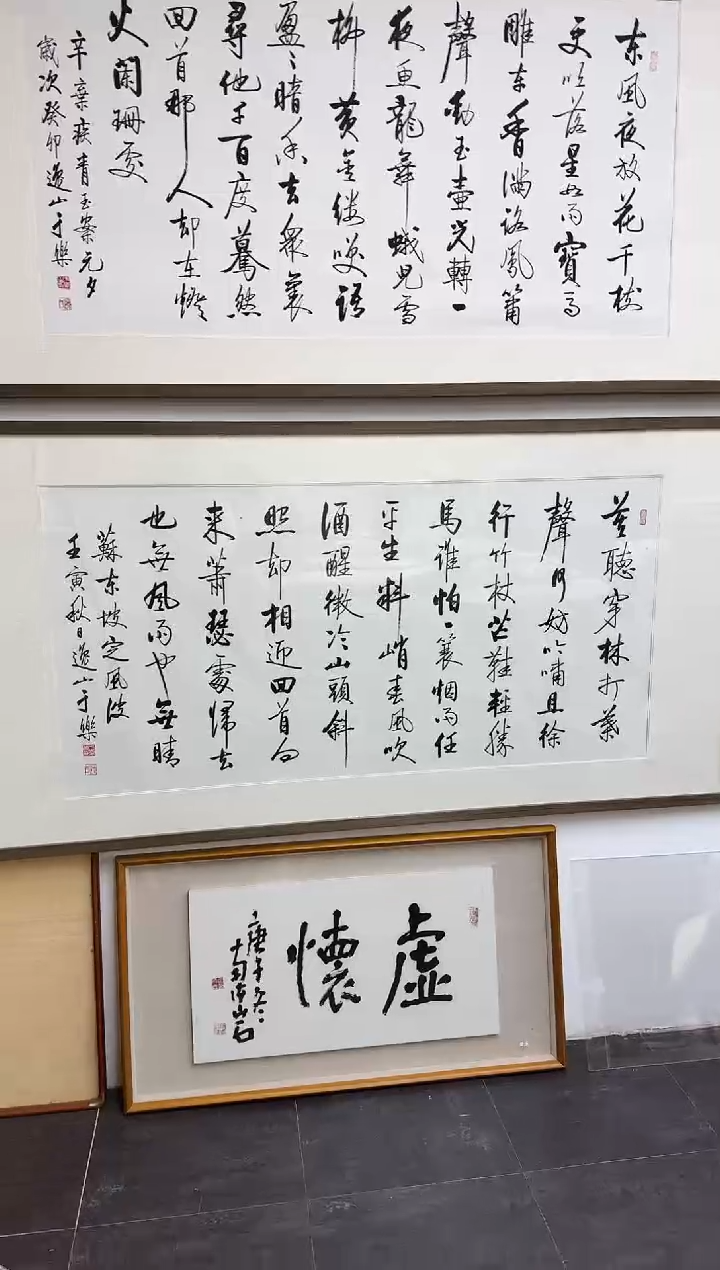 东風夜放花千樹
更吹落星如雨寶馬
雕车香满路鳳簫
聲動玉壺光轉一
夜魚龍舞蛾兒雪
柳黄金缕笑語
盈〻暗香去衆裏
尋他千百度驀然
回首那人却在燈
火闌珊處
辛棄疾青玉案元夕
歲次癸卯逸山于樂
莫聽穿林打葉
聲何妨吟嘯且徐
行竹杖芒鞋輕勝
馬谁怕一蓑烟雨任
平生料峭春風吹
酒醒微冷山頭斜
照却相迎回首向
来萧瑟處歸去
也無風雨也無晴
蘇东坡定風波
壬寅秋日逸山于樂
虚懷
庚午冬
山石